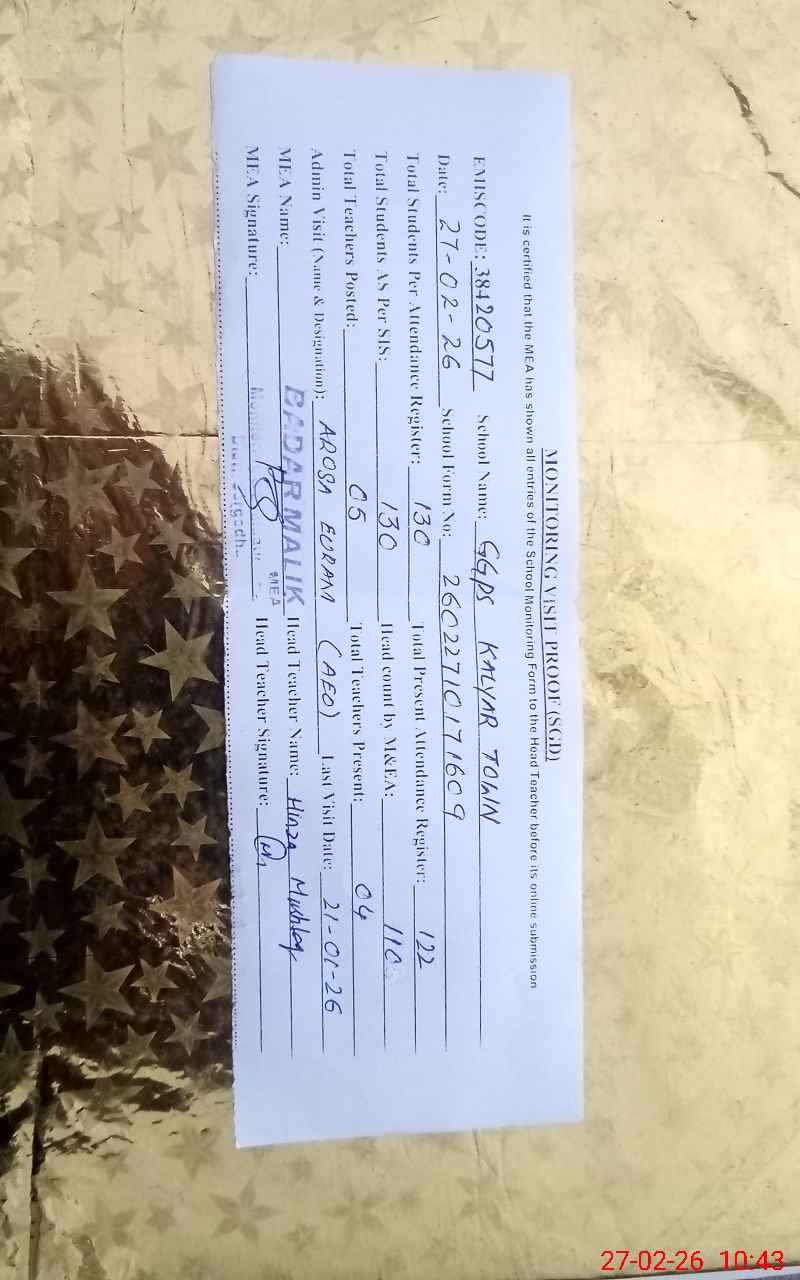 MONITORING VISIT PROOF (SGD)
It is certified that the MEA has shown all entries of the School Monitoring Form to the Head Teacher before its online submission
EMISCODE: 38420577 School Name: GGPS KALYAR TOWN
Date: 27-02-26 School Form No: 26022710171609
Total Students Per Attendance Register: 130 Total Present Attendance Register: 122
Total Students AS Per SIS: 130 Head count by M&EA: 110
Total Teachers Posted: 05 Total Teachers Present: 04
Admin Visit (Name & Designation): AROSA (AEO) Last Visit Date: 21-01-26
MEA Name: BADAR MALIK MEA Head Teacher Name: Hinza
MEA Signature: Head Teacher Signature:
27-02-26 10:43